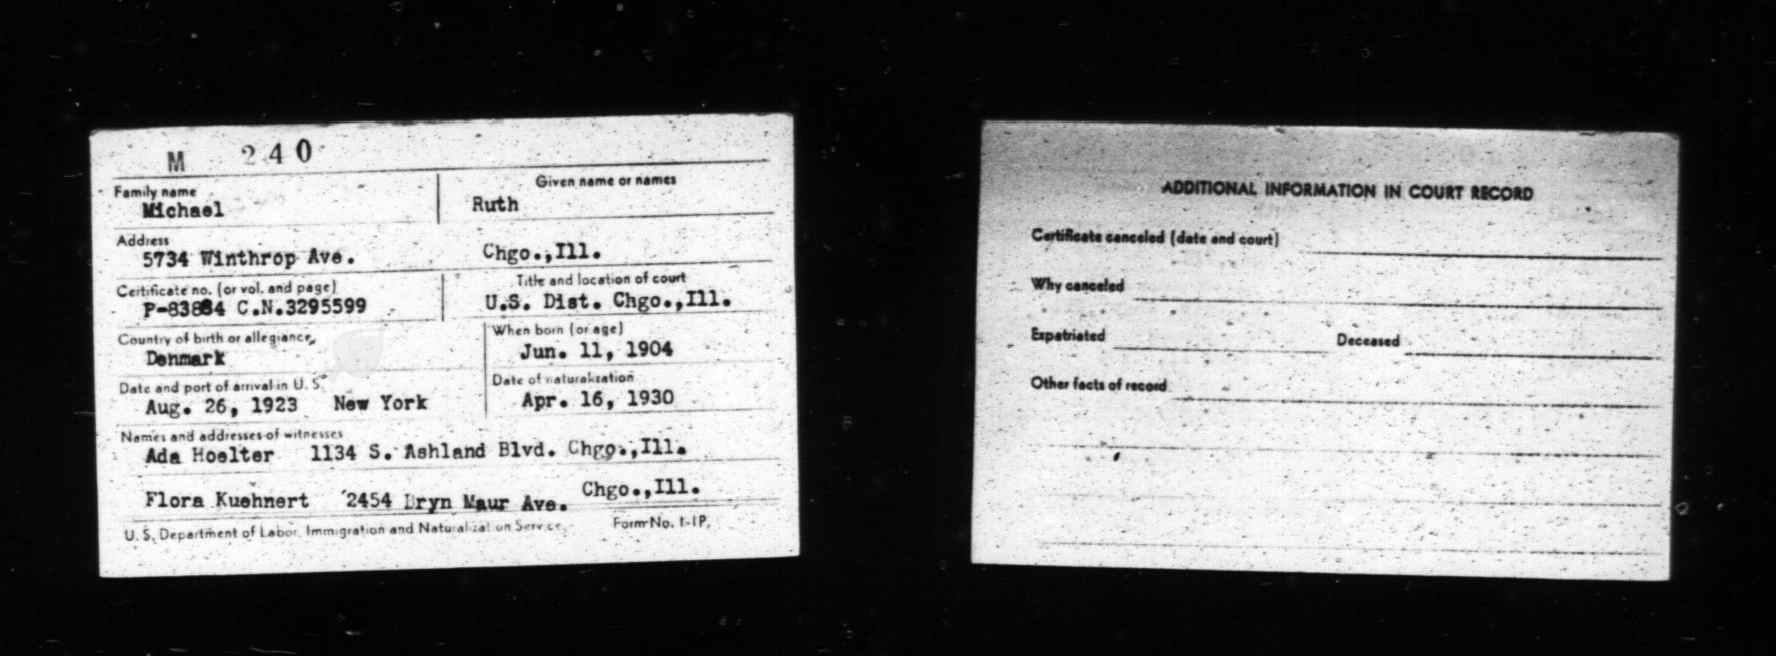 M 240
Family name Given name or names
Michael Ruth
Address
5734 Winthrop Ave. Chgo.,Ill.
Certificate no. (or vol. and page) Title and location of court
P-83884 C.N.3295599 U.S. Dist. Chgo.,Ill.
Country of birth or allegiance When born (or age)
Denmark Jun. 11, 1904
Date and port of arrival in U. S. Date of naturalization
Aug. 26, 1923 New York Apr. 16, 1930
Names and addresses of witnesses
Ada Hoelter 1134 S. Ashland Blvd. Chgo.,Ill.
Flora Kuehnert 2454 Bryn Maur Ave. Chgo.,Ill.
U. S. Department of Labor, Immigration and Naturalization Service. Form No. 1-IP.
ADDITIONAL INFORMATION IN COURT RECORD
Certificate canceled (date and court)
Why canceled
Expatriated Deceased
Other facts of record